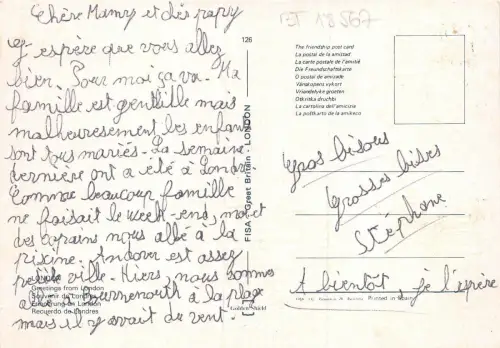 Chère Mamy et dés papy
j'espère que vous allez
bien. Pour moi ça va. Ma
famille est gentille mais
malheuresement les enfan
sont tous mariés. La semaine
dernière ont a été à Londre
Comme beaucoup famille
ne faisait le week-end, moi et
des copains nous allé à la
piscine. Andover est assez
ville. Hiers, nous sommes
allé à Bournemouth à la plage
mais il y avait du vent.
Greetings from London
Souvenir de Londres
Recuerdo de Londres
126
FISA - Great Britain - LONDON
Golden Shield
BT 18567
The friendship post card
La postal de la amistad
La carte postale de l'amitié
Die Freundschaftskarte
O postal de amizade
Vänskapens vykort
Vriendelyke groeten
Otkritka druzhbi
La cartolina dell'amicizia
La postkarto de la amikeco
Gros bisous
Grosses bises
Stéphane
A bientôt, je l'espère
Printed in Spain